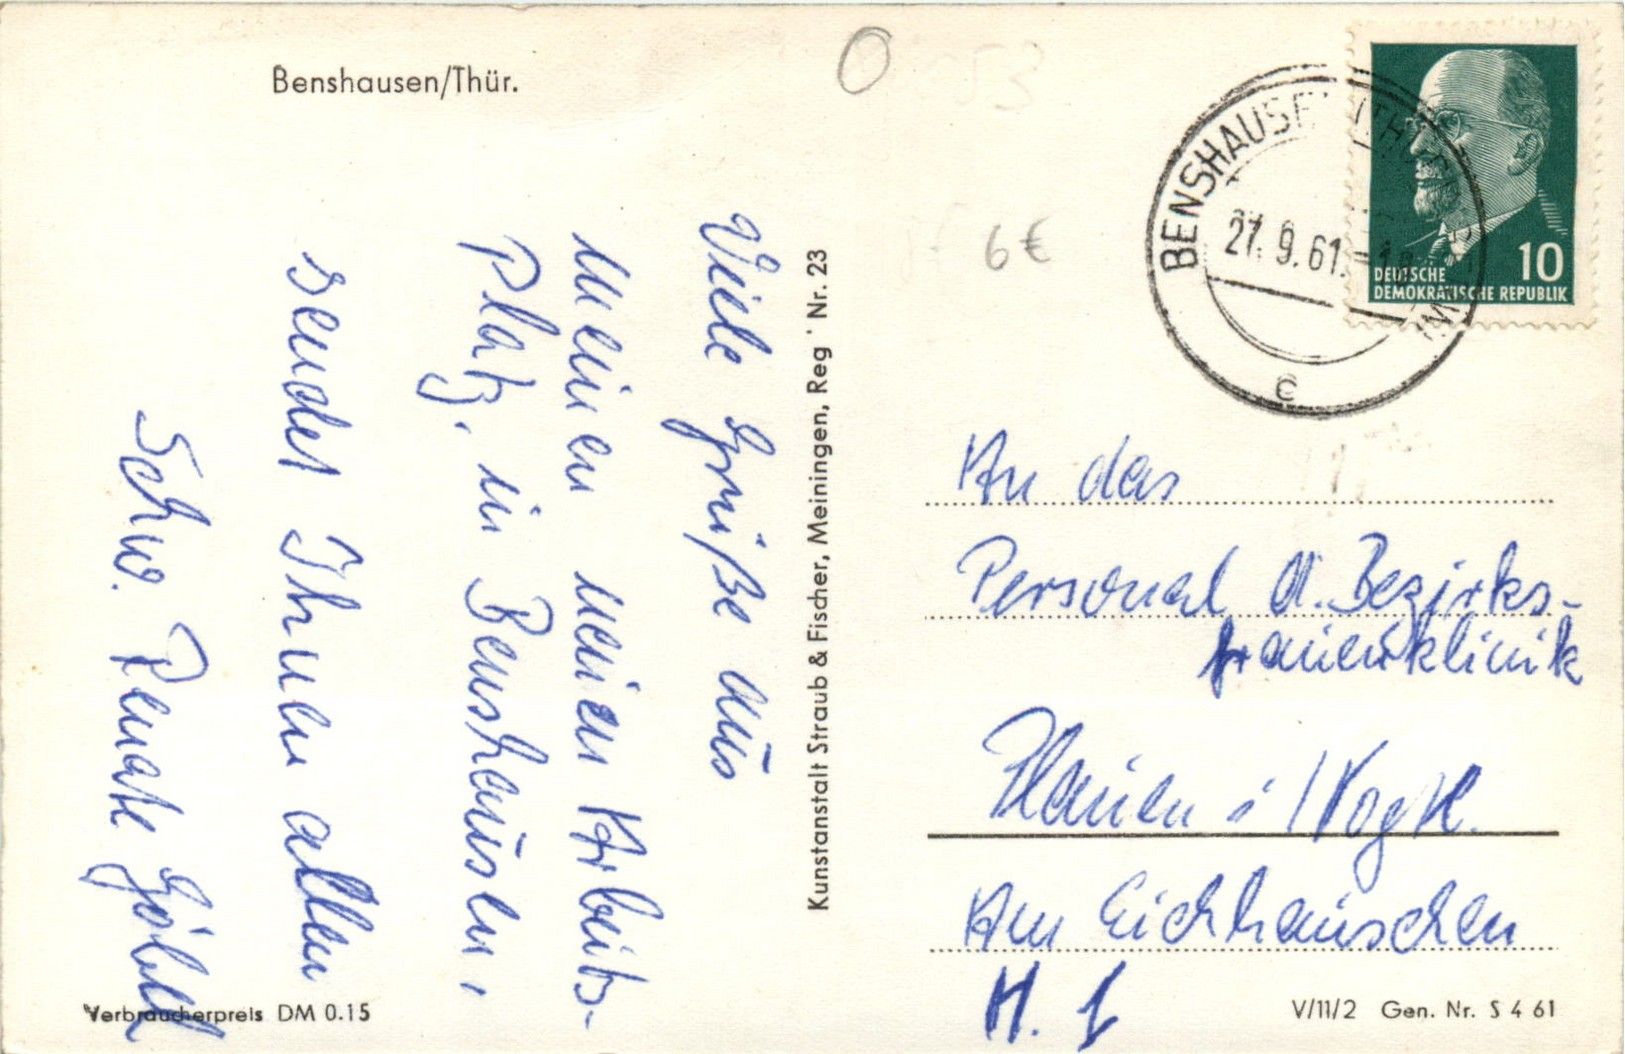 Benshausen/Thür.
Viele Grüße aus
Meinen neuen Arbeits-
platz, in Benshausen,
sendet Ihnen allen
Schw. Renate
Verbraucherpreis DM 0.15
Kunstanstalt Straub & Fischer, Meiningen, Reg Nr. 23
6€
BENSHAUSEN (THÜR
27. 9. 61.
c
10
DEUTSCHE
DEMOKRATISCHE REPUBLIK
An das
Personal d. Bezirks-
frauenklinik
Plauen i/Vogtl.
Am Eichhäuschen
V/11/2 Gen. Nr. S 4 61